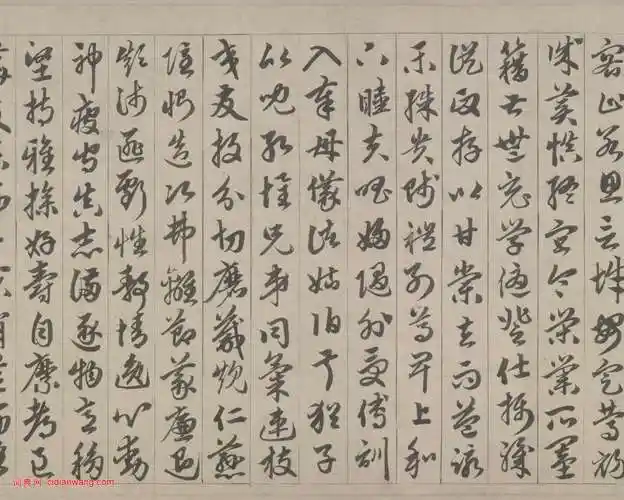 容止若思言辭安定篤初
誠美慎終宜令榮業所基
籍甚無竟學優登仕攝職
從政存以甘棠去而益詠
樂殊貴賤禮別尊卑上和
下睦夫唱婦隨外受傅訓
入奉母儀諸姑伯叔猶子
比兒孔懷兄弟同氣連枝
交友投分切磨箴規仁慈
隱惻造次弗離節義廉退
顛沛匪虧性靜情逸心動
神疲守真志滿逐物意移
堅持雅操好爵自縻都邑
词典网 cidianwang.com